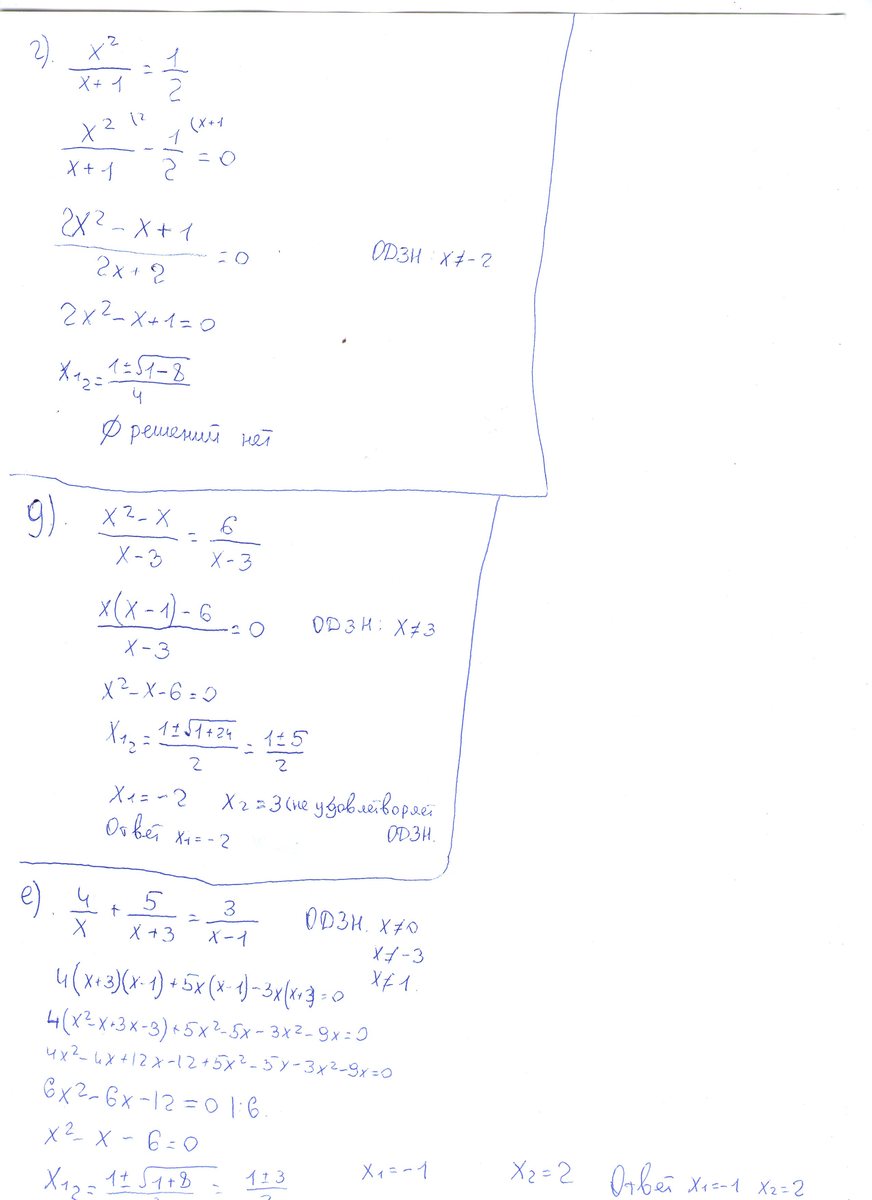 г). x²/(x+1) = 1/2
x²/(x+1) \2 - 1/2 (x+1 = 0
(2x² - x + 1)/(2x + 2) = 0 ОДЗН: x ≠ -2
2x² - x + 1 = 0
x₁₂ = (1 ± √(1-8))/4
∅ решений нет
д). (x² - x)/(x - 3) = 6/(x - 3)
(x(x - 1) - 6)/(x - 3) = 0 ОДЗН: x ≠ 3
x² - x - 6 = 0
x₁₂ = (1 ± √(1+24))/2 = (1 ± 5)/2
x₁ = -2 x₂ = 3 (не удовлетворяет
Ответ x₁ = -2 ОДЗН.
е). 4/x + 5/(x+3) = 3/(x-1) ОДЗН. x ≠ 0
x ≠ -3
x ≠ 1.
4(x+3)(x-1) + 5x(x-1) - 3x(x+3) = 0
4(x² - x + 3x - 3) + 5x² - 5x - 3x² - 9x = 0
4x² - 4x + 12x - 12 + 5x² - 5x - 3x² - 9x = 0
6x² - 6x - 12 = 0 |:6.
x² - x - 6 = 0
x₁₂ = (1 ± √(1+8))/2 = (1 ± 3)/2 x₁ = -1 x₂ = 2 Ответ x₁ = -1 x₂ = 2